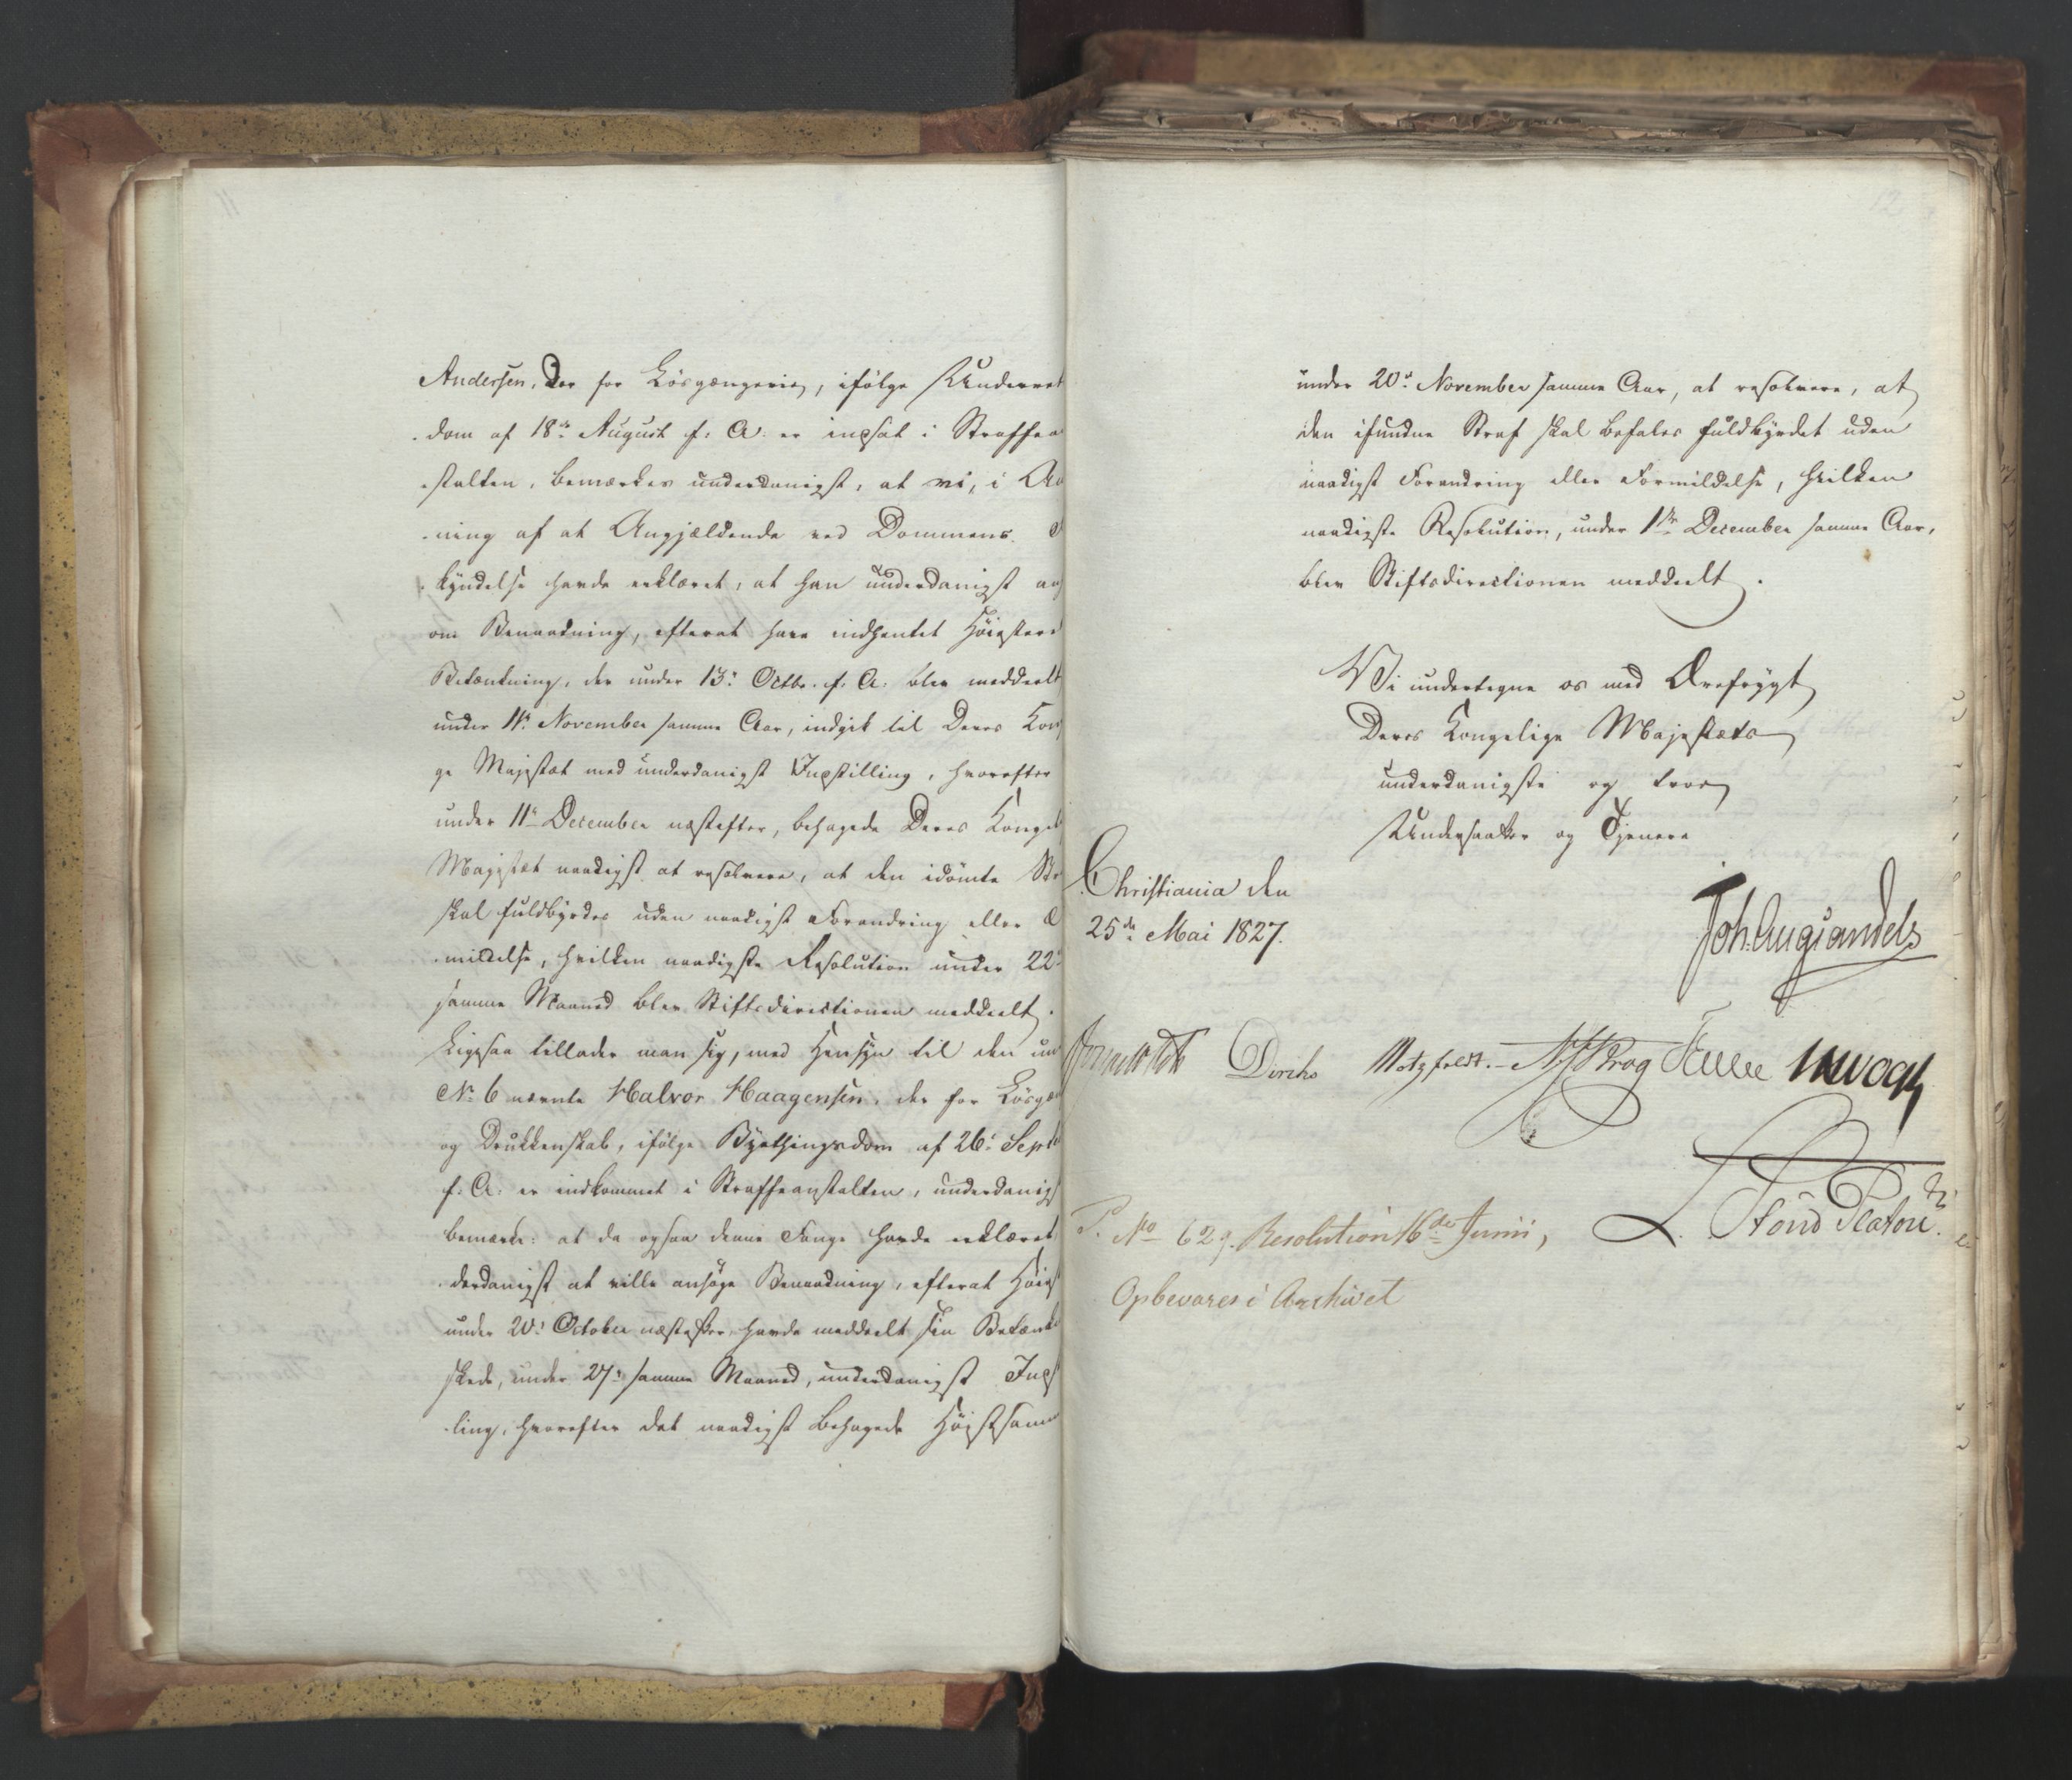 Andersen, der for Løsgængerie, ifølge Underret
dom af 18de August f: A: er indsat i Straffea
stalten, bemærkes underdanigst, at vi, i A
ning af at Angjældende ved Dommens
kyndelse havde erklæret, at han underdanigst
om Benaadning, efterat have indhentet Høiestere
Betænkning, der under 13: Octbr. f: A: blev meddeelt
under 11: November samme Aar, indgik til Deres Kon
ge Majestæt med underdanigst Indstilling, hvorefter
under 11te December næstefter, behagede Deres Kongel
Majestæt naadigst at resolvere, at den idømte St
skal fuldbyrdes uden naadigst Forandring eller
mildelse, hvilken naadigste Resolution under 22:
samme Maaned blev Stiftsdirectionen meddeelt.
Ligesaa tillader man sig, med Hensyn til den un
No 6 nævnte Halvor Haagensen, der for Løsgæn
og Drukkenskab, ifølge Byethingsdom af 26: Septb
f: A: er indkommet i Straffeanstalten, underdanigst
bemærke: at da ogsaa denne Fange havde erklæret
derdanigst at ville ansøge Benaadning, efterat Høies
under 20: October næstefter, havde meddeelt sin Betænk
skede, under 27: samme Maaned, underdanigst Inds
ling, hvorefter det naadigst behagede Høistsamm
under 20: November samme Aar, at resolvere, at
den ifundne Straf skal befales fuldbyrdet uden
naadigst Forandring eller Formildelse, hvilken
naadigste Resolution, under 1ste December samme Aar,
blev Stiftsdirectionen meddeelt.
Vi undertegne os med Ærefrygt
Deres Kongelige Majestæts
underdanigste og troe
Undersaatter og Tjenere
Christiania den
25de Mai 1827.
Joh: Aug: Sandels
Diriks Motzfeldt. Krog
L. Stoud Platou
P. No 629. Resolution 16de Junii,
Opbevares i Archivet